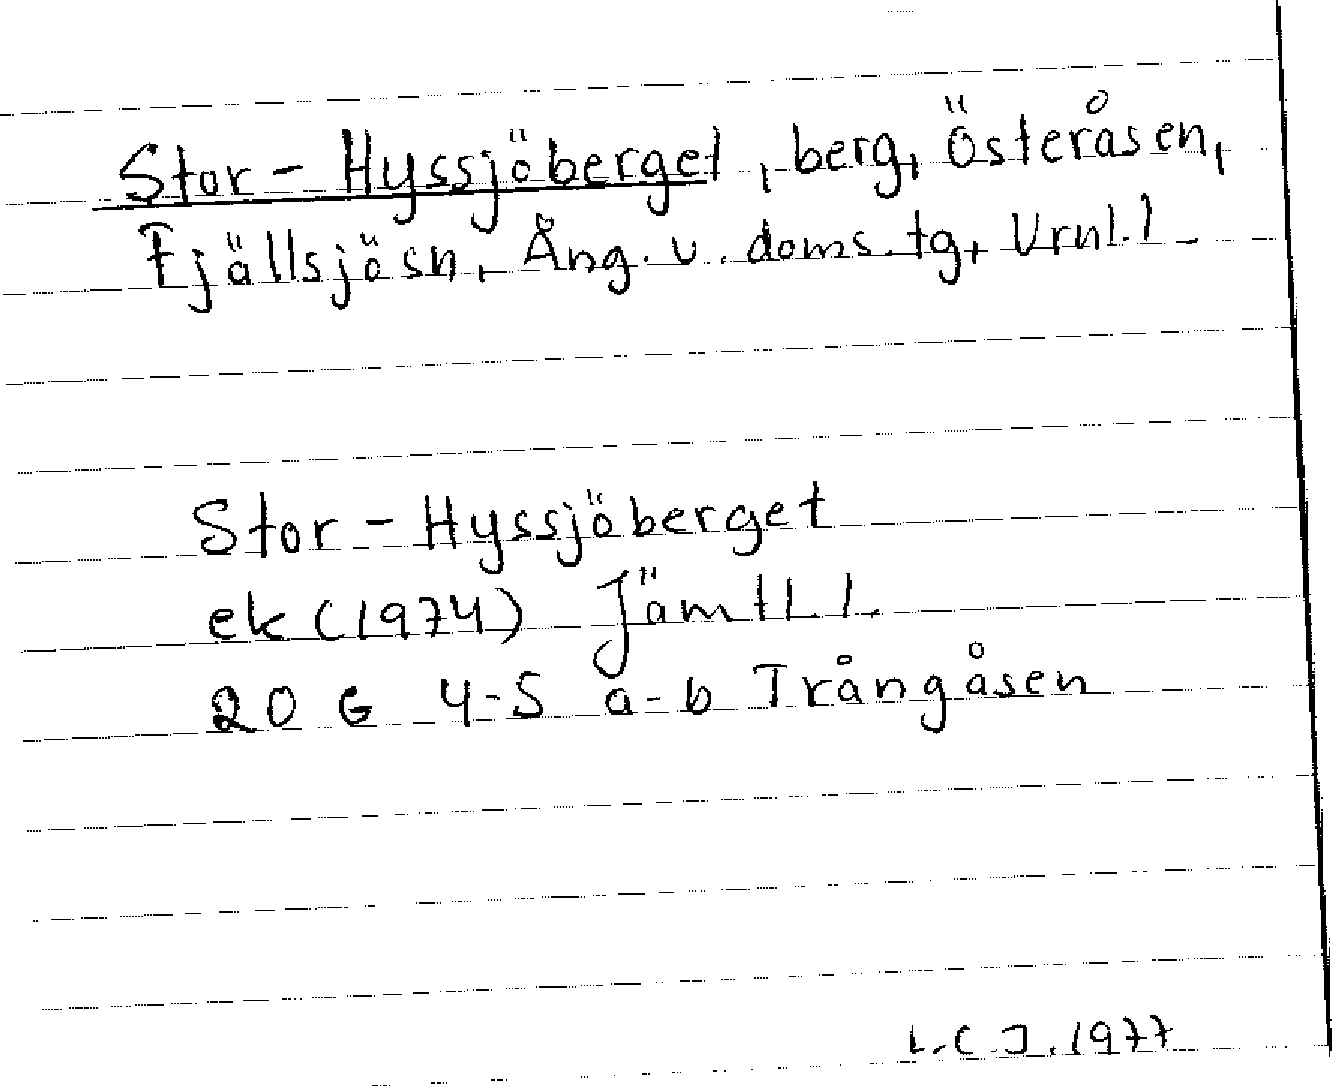 Stor-Hyssjöberget, berg, Österåsen,
Fjällsjösn, Ång. v. doms.tg, Vrnl.l
Stor-Hyssjöberget
ek (1974) Jämtl.l.
20 G 4-5 a-b Trångåsen
L.C J. 1977